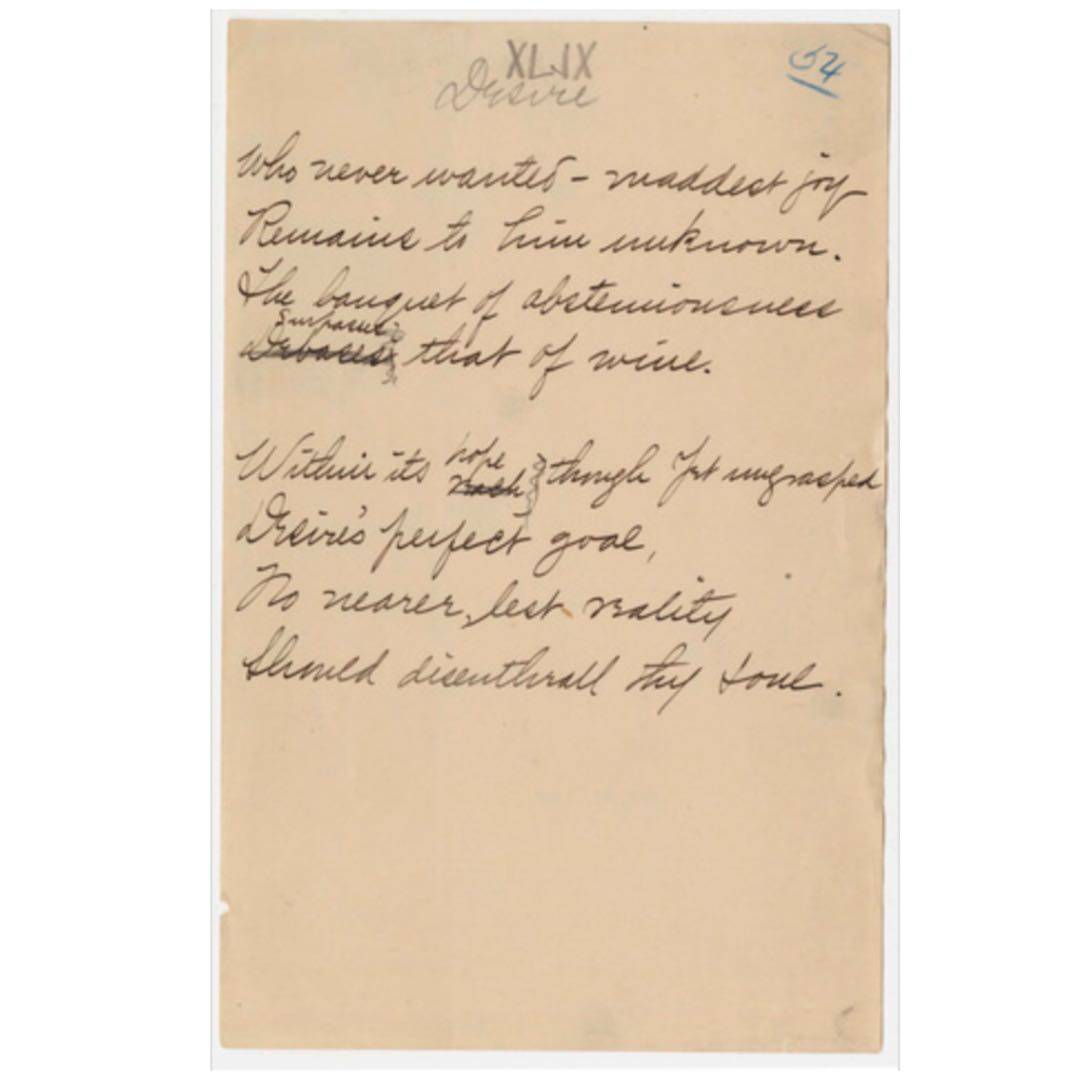 XLIX
54
Desire
Who never wanted – maddest joy
Remains to him unknown.
The banquet of abstemiousness
Surpasses
Debases that of wine.
hope
Within its reach though yet ungrasped
Desire's perfect goal,
No nearer, lest reality
Should disenthrall thy soul.